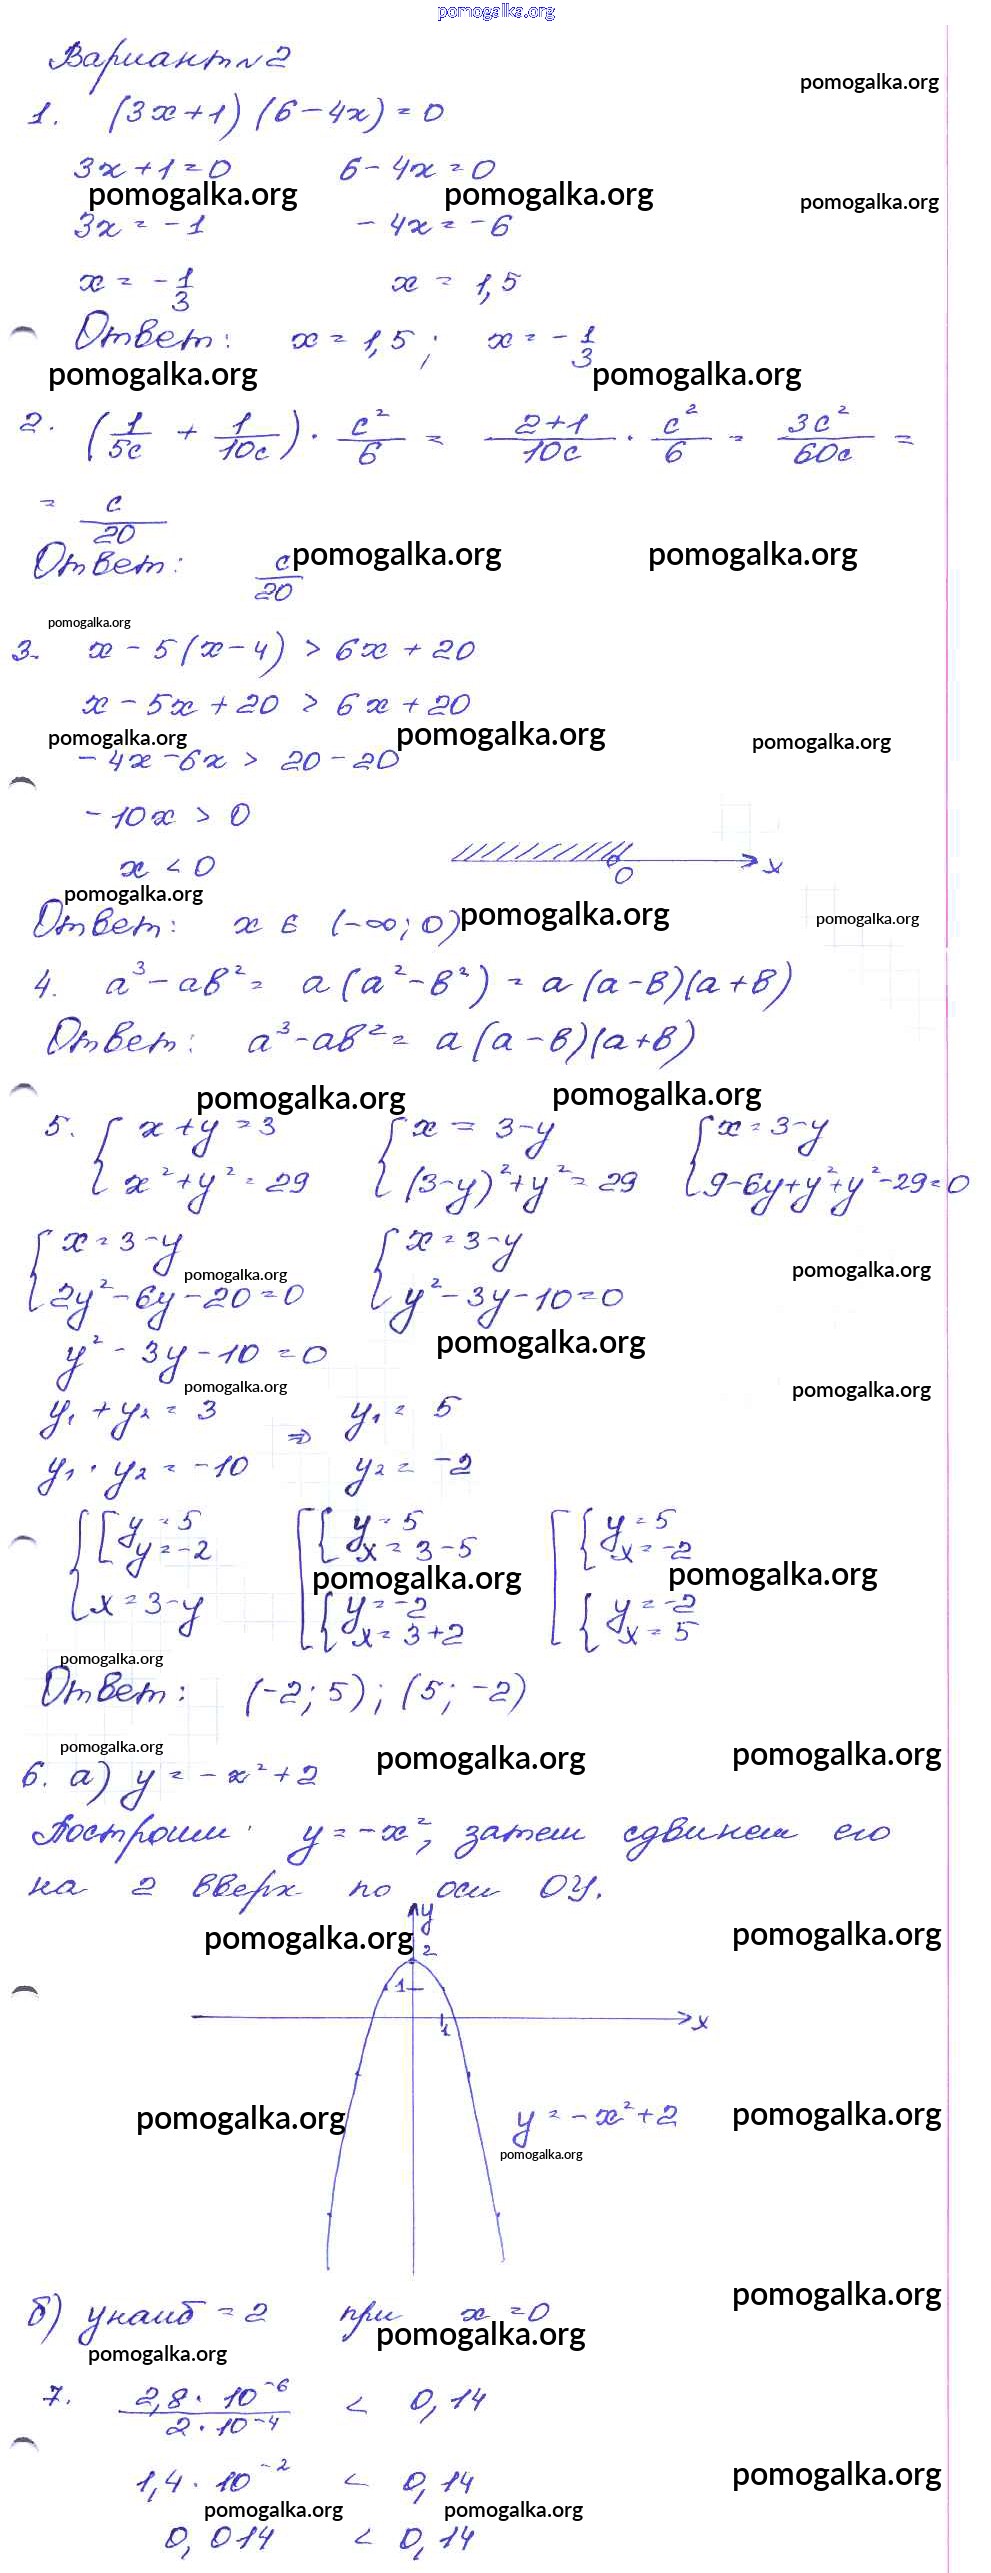 pomogalka.org
Вариант №2
pomogalka.org
1. (3x+1)(6-4x)=0
3x+1=0 6-4x=0
pomogalka.org pomogalka.org pomogalka.org
3x=-1 -4x=-6
x=-1/3 x=1,5
Ответ: x=1,5; x=-1/3
pomogalka.org pomogalka.org
2. (1/5c + 1/10c) · c²/6 = 2+1/10c · c²/6 = 3c²/60c =
= c/20
Ответ: c/20
pomogalka.org pomogalka.org
pomogalka.org
3. x-5(x-4) > 6x+20
x-5x+20 > 6x+20
pomogalka.org pomogalka.org pomogalka.org
-4x-6x > 20-20
-10x > 0
x < 0
0 x
pomogalka.org
Ответ: x ∈ (-∞; 0)
pomogalka.org pomogalka.org
4. a³-aв² = a(a²-в²) = a(a-в)(a+в)
Ответ: a³-aв² = a(a-в)(a+в)
pomogalka.org pomogalka.org
5. { x+y=3 { x=3-y { x=3-y
x²+y²=29 (3-y)²+y²=29 9-6y+y²+y²-29=0
{ x=3-y { x=3-y
pomogalka.org pomogalka.org
2y²-6y-20=0 y²-3y-10=0
pomogalka.org
y²-3y-10=0
pomogalka.org pomogalka.org
y₁+y₂=3 ⇒ y₁=5
y₁·y₂=-10 y₂=-2
{ [ y=5 [ { y=5 [ { y=5
y=-2 x=3-5 x=-2
pomogalka.org pomogalka.org
x=3-y { y=-2 { y=-2
x=3+2 x=5
pomogalka.org
Ответ: (-2; 5); (5; -2)
pomogalka.org pomogalka.org pomogalka.org
6. а) y=-x²+2
Построим y=-x², затем сдвинем его
на 2 вверх по оси ОУ.
y
pomogalka.org pomogalka.org
2
1
1 x
pomogalka.org y=-x²+2 pomogalka.org
pomogalka.org
pomogalka.org
б) yнаиб = 2 при x=0
pomogalka.org
pomogalka.org
7. 2,8·10⁻⁶/2·10⁻⁴ < 0,14
1,4·10⁻² < 0,14
pomogalka.org
pomogalka.org pomogalka.org
0,014 < 0,14